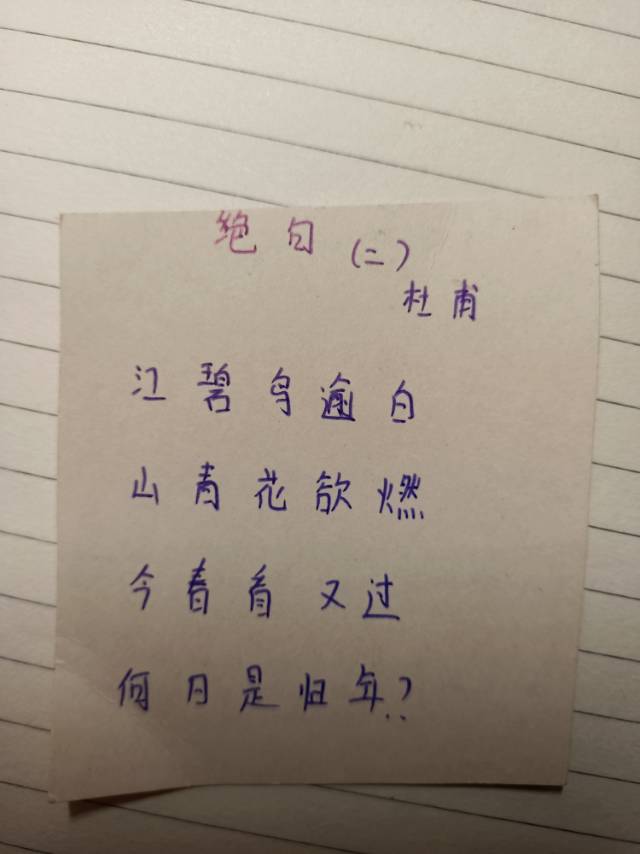 绝句(二)
杜甫
江碧鸟逾白
山青花欲燃
今春看又过
何日是归年?